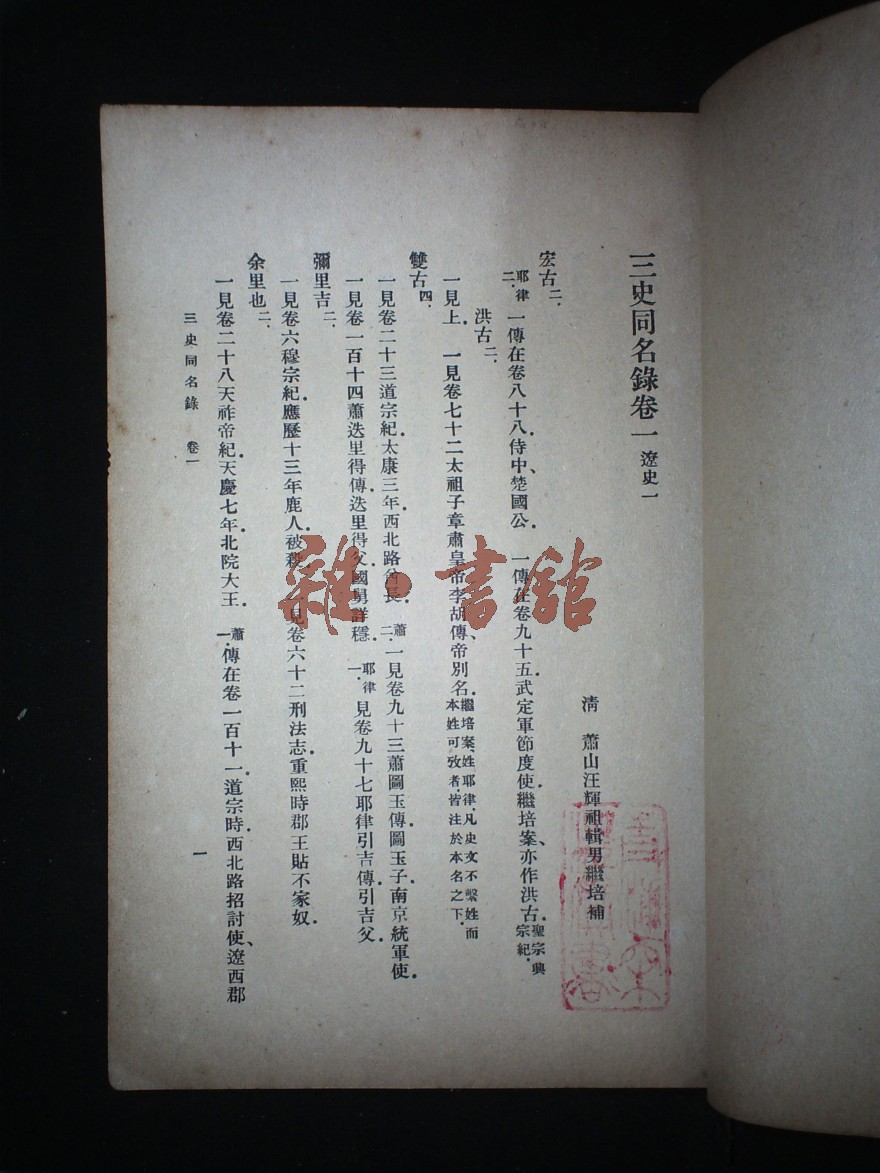 三史同名錄卷一 遼史一
清 蕭山汪輝祖輯男繼培補
宏古二.
耶律二. 一傳在卷八十八.侍中、楚國公. 一傳在卷九十五.武定軍節度使.繼培案、亦作洪古.聖宗興宗紀.
洪古二.
一見上. 一見卷七十二太祖子章肅皇帝李胡傳、帝別名.繼培案、姓耶律.凡史文不繫姓而本姓可攷者.皆注於本名之下.
雙古四.
一見卷二十三道宗紀.太康三年.西北路酋長. 蕭二. 一見卷九十三蕭圖玉傳.圖玉子.南京統軍使.
一見卷一百十四蕭迭里得傳.迭里得父.國舅詳穩. 耶律一. 見卷九十七耶律引吉傳.引吉父.
彌里吉二.
一見卷六穆宗紀.應歷十三年鹿人被殺. 一見卷六十二刑法志.重熙時郡王貼不家奴.
余里也二.
一見卷二十八天祚帝紀.天慶七年.北院大王. 蕭一. 傳在卷一百十一.道宗時.西北路招討使、遼西郡
三史同名錄 卷一
一
雜·書舘